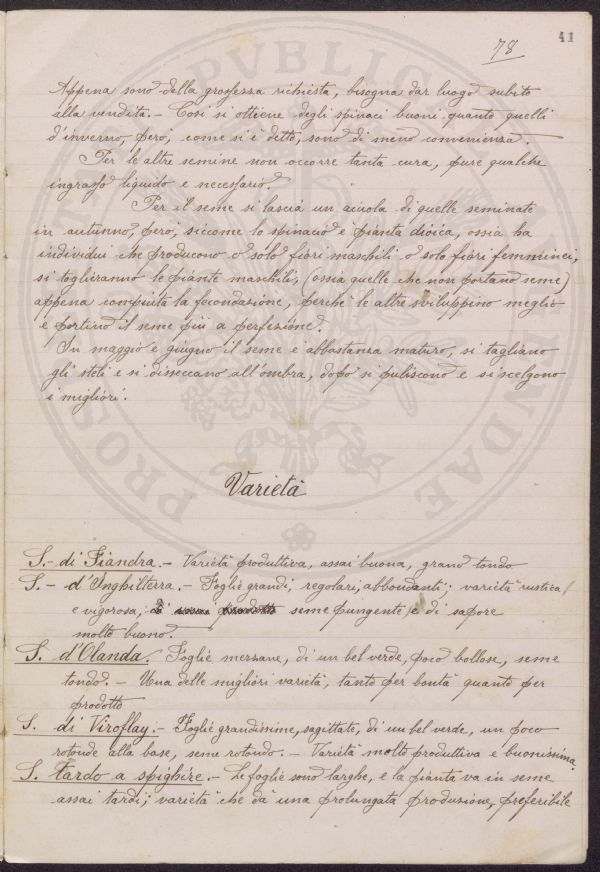 41
78
Appena sono della grossezza richiesta, bisogna dar luogo subito
alla vendita. - Così si ottiene degli spinaci buoni quanto quelli
d'inverno, però, come si è detto, sono di meno convenienza.
Per le altre semine non occorre tanta cura, pure qualche
ingrasso liquido è necessario.
Per il seme si lascia un aiuola di quelle seminate
in autunno, però, siccome lo spinacio è pianta dioica, ossia ha
individui che producono o solo fiori maschili o solo fiori femminei,
si toglieranno le piante maschili, (ossia quelle che non portano seme)
appena compiuta la fecondazione, perchè le altre sviluppino meglio
e portino il seme più a perfezione.
In maggio e giugno il seme è abbastanza maturo, si tagliano
gli steli e si disseccano all'ombra, dopo si puliscono e si scelgono
i migliori.
Varietà
S. - di Fiandra. - Varietà produttiva, assai buona, grano tondo
S. - d'Inghilterra. - Foglie grandi, regolari, abbondanti; varietà rustica
e vigorosa; seme pungente e di sapore
molto buono.
S. d'Olanda. Foglie mezzane, di un bel verde, poco bollose, seme
tondo. - Una delle migliori varietà, tanto per bontà quanto per
prodotto
S. di Viroflay. - Foglie grandissime, sagittate, di un bel verde, un poco
rotonde alla base, seme rotondo. - Varietà molto produttiva e buonissima.
S. tardo a spighire. - Le foglie sono larghe, e la pianta va in seme
assai tardi; varietà che dà una prolungata produzione, preferibile